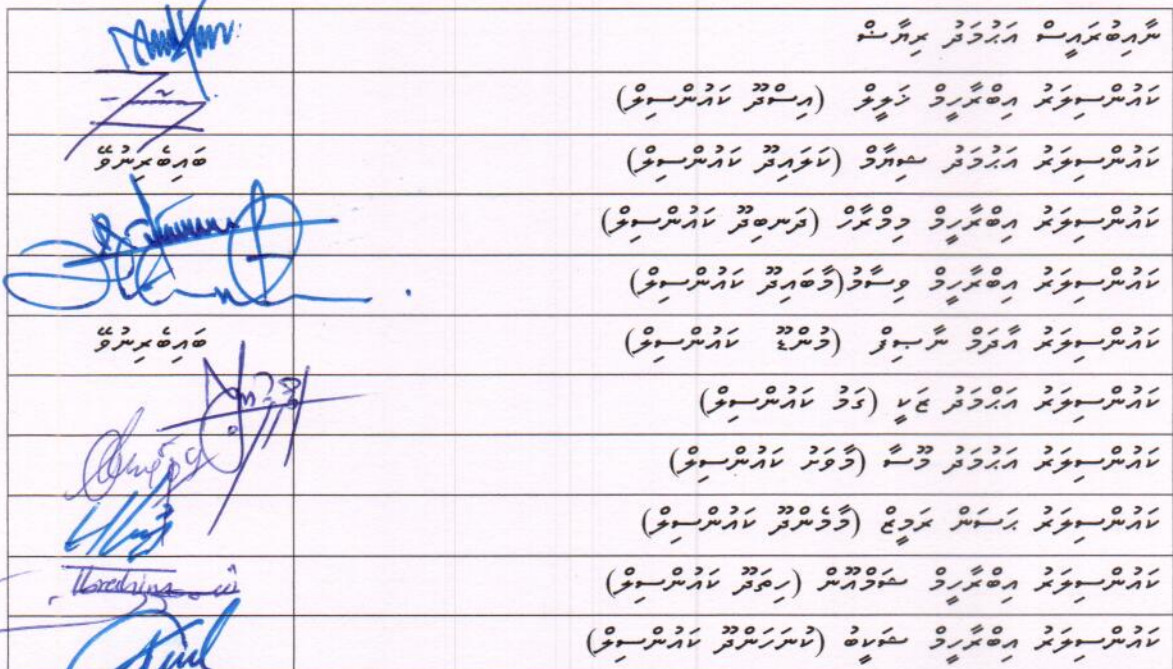 ނާއިބުރައީސް އަޙުމަދު ރިޔާޟް
ކައުންސިލަރު އިބްރާހީމް ޚަލީލް (އިސްދޫ ކައުންސިލް)
ކައުންސިލަރު އަޙުމަދު ޝިޔާމް (ކަލައިދޫ ކައުންސިލް) ބައިބެރިނުވޭ
ކައުންސިލަރު އިބްރާހީމް މިމްރާހް (ދަނބިދޫ ކައުންސިލް)
ކައުންސިލަރު އިބްރާހީމް ވިސާމު(މާބައިދޫ ކައުންސިލް)
ކައުންސިލަރު އާދަމް ނާޞިފް (މުންޑޫ ކައުންސިލް) ބައިބެރިނުވޭ
ކައުންސިލަރު އަޙްމަދު ޒަކީ (ގަމު ކައުންސިލް)
ކައުންސިލަރު އަޙުމަދު މޫސާ (މާވަށު ކައުންސިލް)
ކައުންސިލަރު ޙަސަން ރަމީޒް (މާމެންދޫ ކައުންސިލް)
ކައުންސިލަރު އިބްރާހީމް ޝަމްޢޫން (ހިތަދޫ ކައުންސިލް)
ކައުންސިލަރު އިބްރާހީމް ޝަކީބު (ކުނަހަންދޫ ކައުންސިލް)